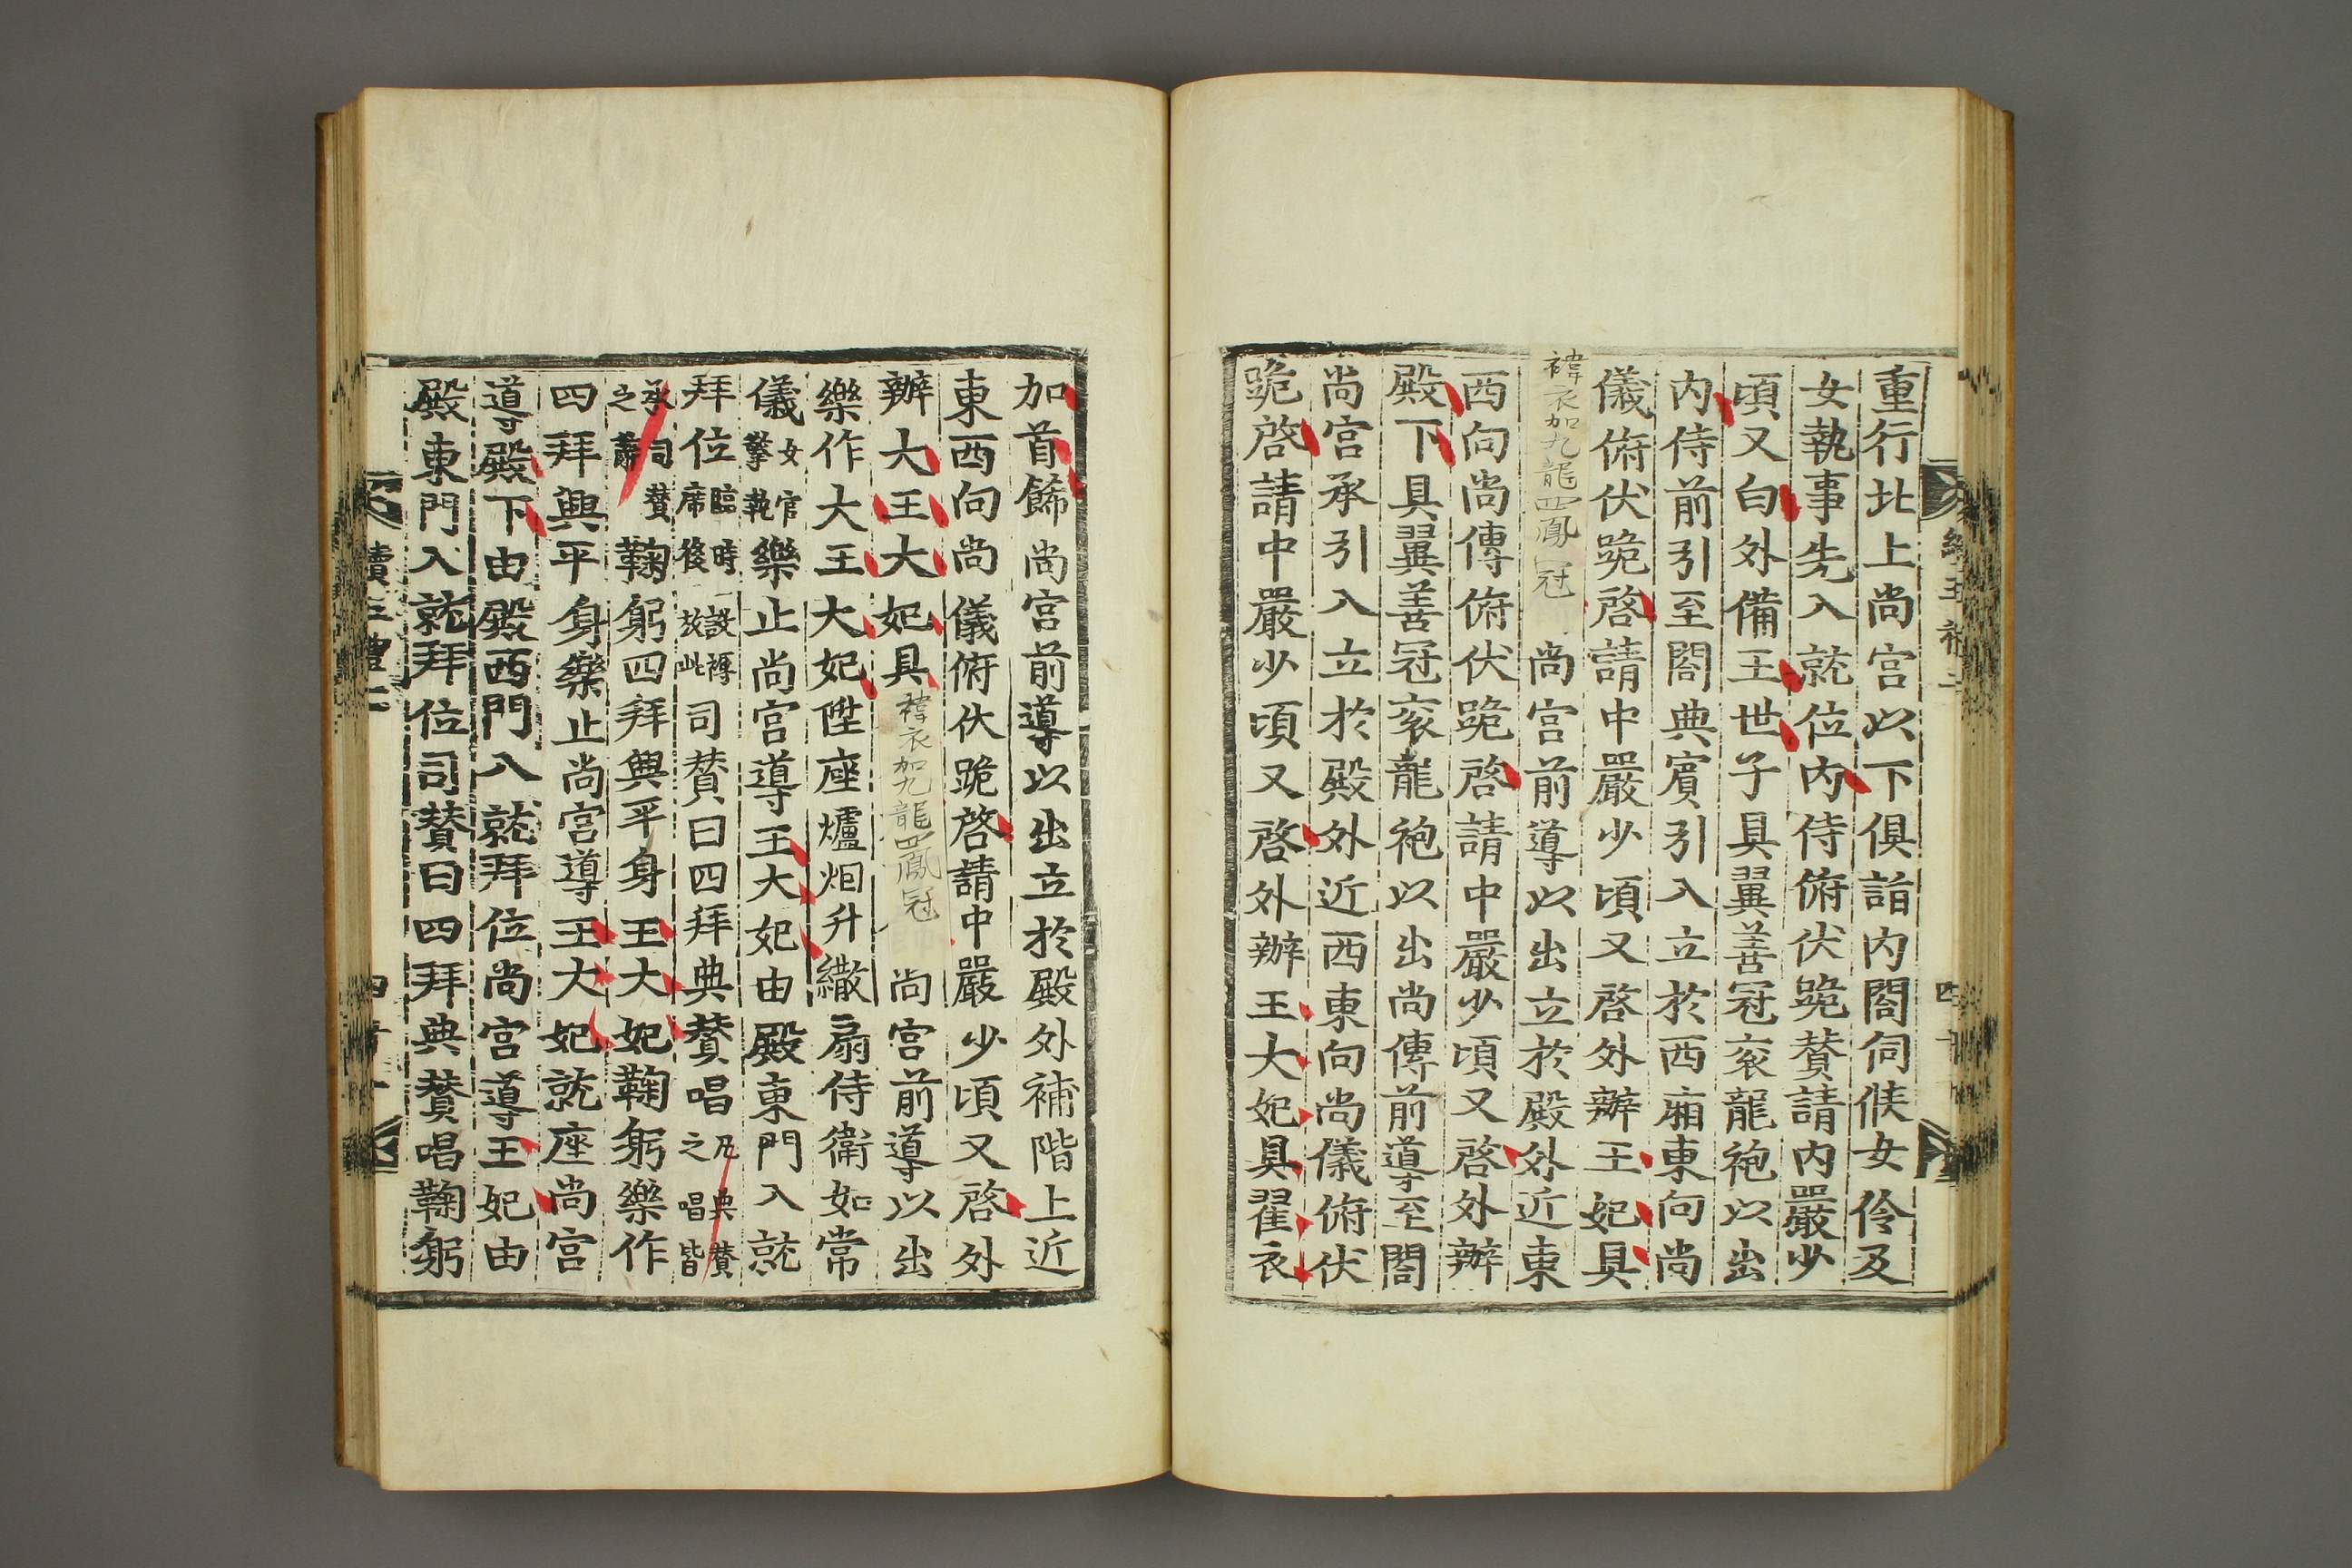 重行北上尚宮以下俱詣内閤伺候女伶及
女執事先入就位内侍俯伏跪賛請内嚴少
頃又白外備王世子具翼善冠衮龍袍以出
内侍前引至閤典賓引入立於西廂東向尚
儀俯伏跪啓請中嚴少頃又啓外辦王妃具
褘衣加九龍四鳳冠尚宮前導以出立於殿外近東
西向尚傳俯伏跪啓請中嚴少頃又啓外辦
殿下具翼善冠衮龍袍以出尚傳前導至閤
尚宮承引入立於殿外近西東向尚儀俯伏
跪啓請中嚴少頃又啓外辦王大妃具翟衣
加首飾尚宮前導以出立於殿外補階上近
東西向尚儀俯伏跪啓請中嚴少頃又啓外
辦大王大妃具褘衣加九龍四鳳冠尚宮前導以出
樂作大王大妃陞座爐烟升繖扇侍衛如常
儀女官擎執樂止尚宮導王大妃由殿東門入就
拜位臨時設褥席後放此司賛曰四拜典賛唱凡典賛之唱皆
承司賛之辭鞠躬四拜興平身王大妃鞠躬樂作
四拜興平身樂止尚宮導王大妃就座尚宮
導殿下由殿西門入就拜位尚宮導王妃由
殿東門入就拜位司賛曰四拜典賛唱鞠躬